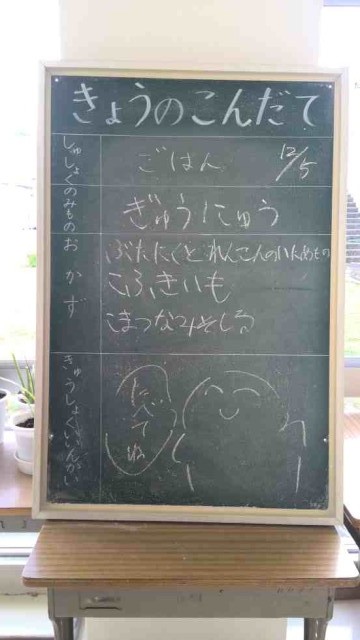 きょうのこんだて
しゅしょく
ごはん
12/5
のみもの
ぎゅうにゅう
おかず
ぶたにくとれんこんのいためもの
こふきいも
こまつなみそしる
きゅうしょくいいんかい
たべてね